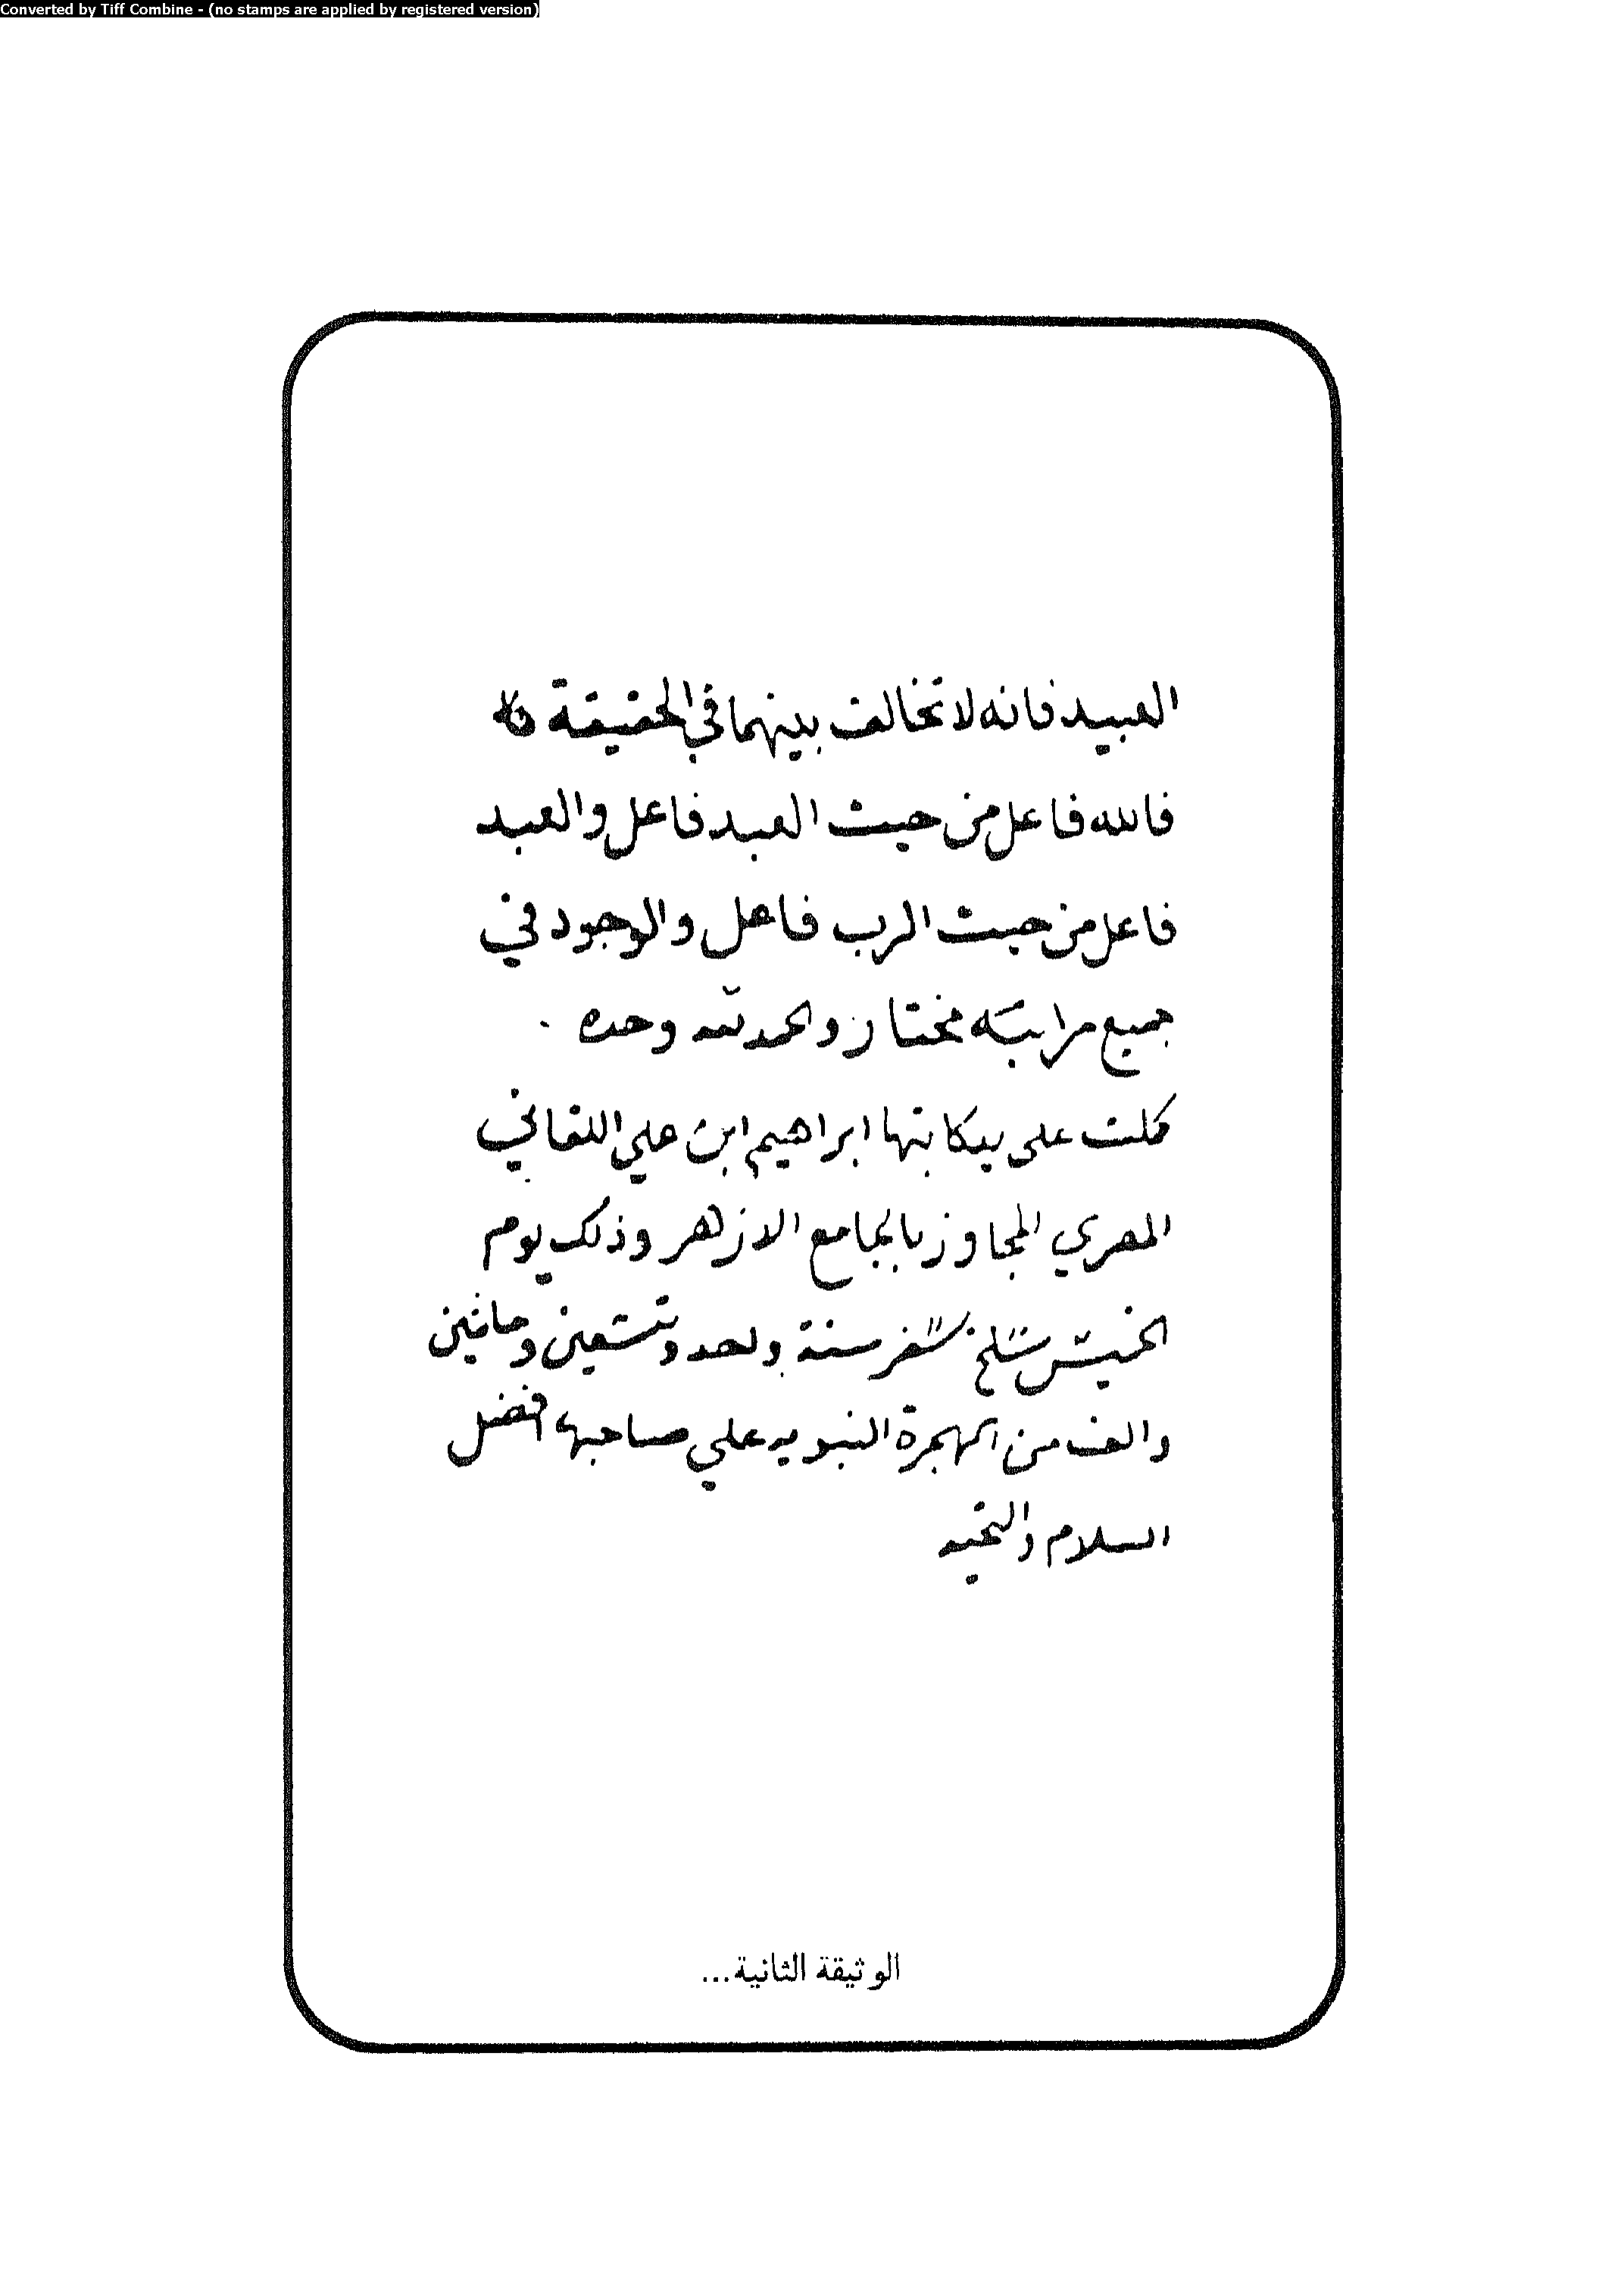 Converted by Tiff Combine - (no stamps are applied by registered version)
العبيد فانه لا تخالف بينهما في الحقيقة
فالله فاعل من حيث العبد فاعل والعبد
فاعل من حيث الرب فاعل والوجود في
جميع مراتبه مختار والحمد لله وحده .
كملت على يد كاتبها ابراهيم ابن علي اللقاني
المصري المجاور بالجامع الازهر وذلك يوم
الخميس سلخ سنة واحد وتسعين ومائتين
والف من الهجرة النبويه علي صاحبها افضل
السلام والتحيه
الوثيقة الثانية...